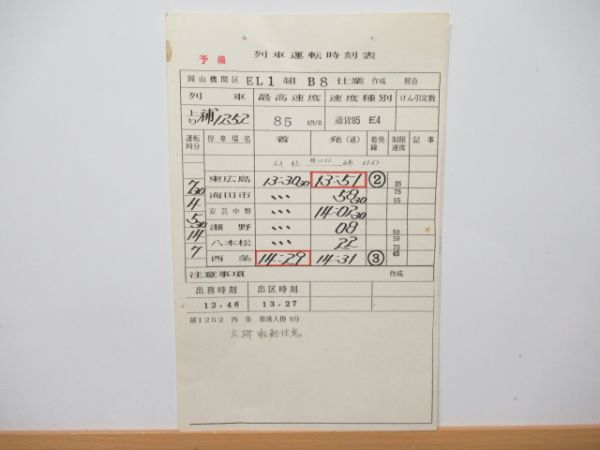 予備
列車運転時刻表
岡山機関区 EL1組 B8仕業 作成 照合
列車 最高速度 速度種別 けん引定数
上り 補1252 85 KM/H 通貨85 E4
運転時分 停車場名 着 発(通) 着発線 制限速度 記事
東広島 13-30 30 13-51 ② 35
7 30 海田市 〃 58 30 75 55
4 安芸中野 〃 14-02 30
5 30 瀬野 〃 08 50
14 八本松 〃 22 50 75
7 西条 14-29 14-31 ③ 45
注意事項 作成
出務時刻 出区時刻
12.46 13.27
補1252 西条